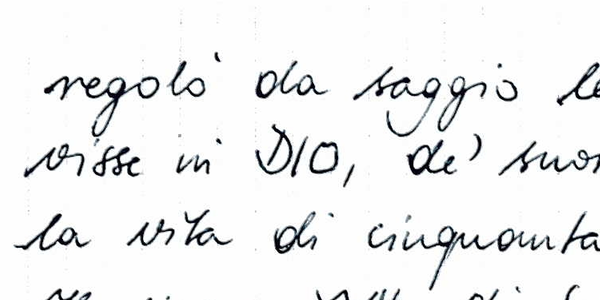 regolò da saggio le
visse in DIO, de' suoi
la vita di cinquanta